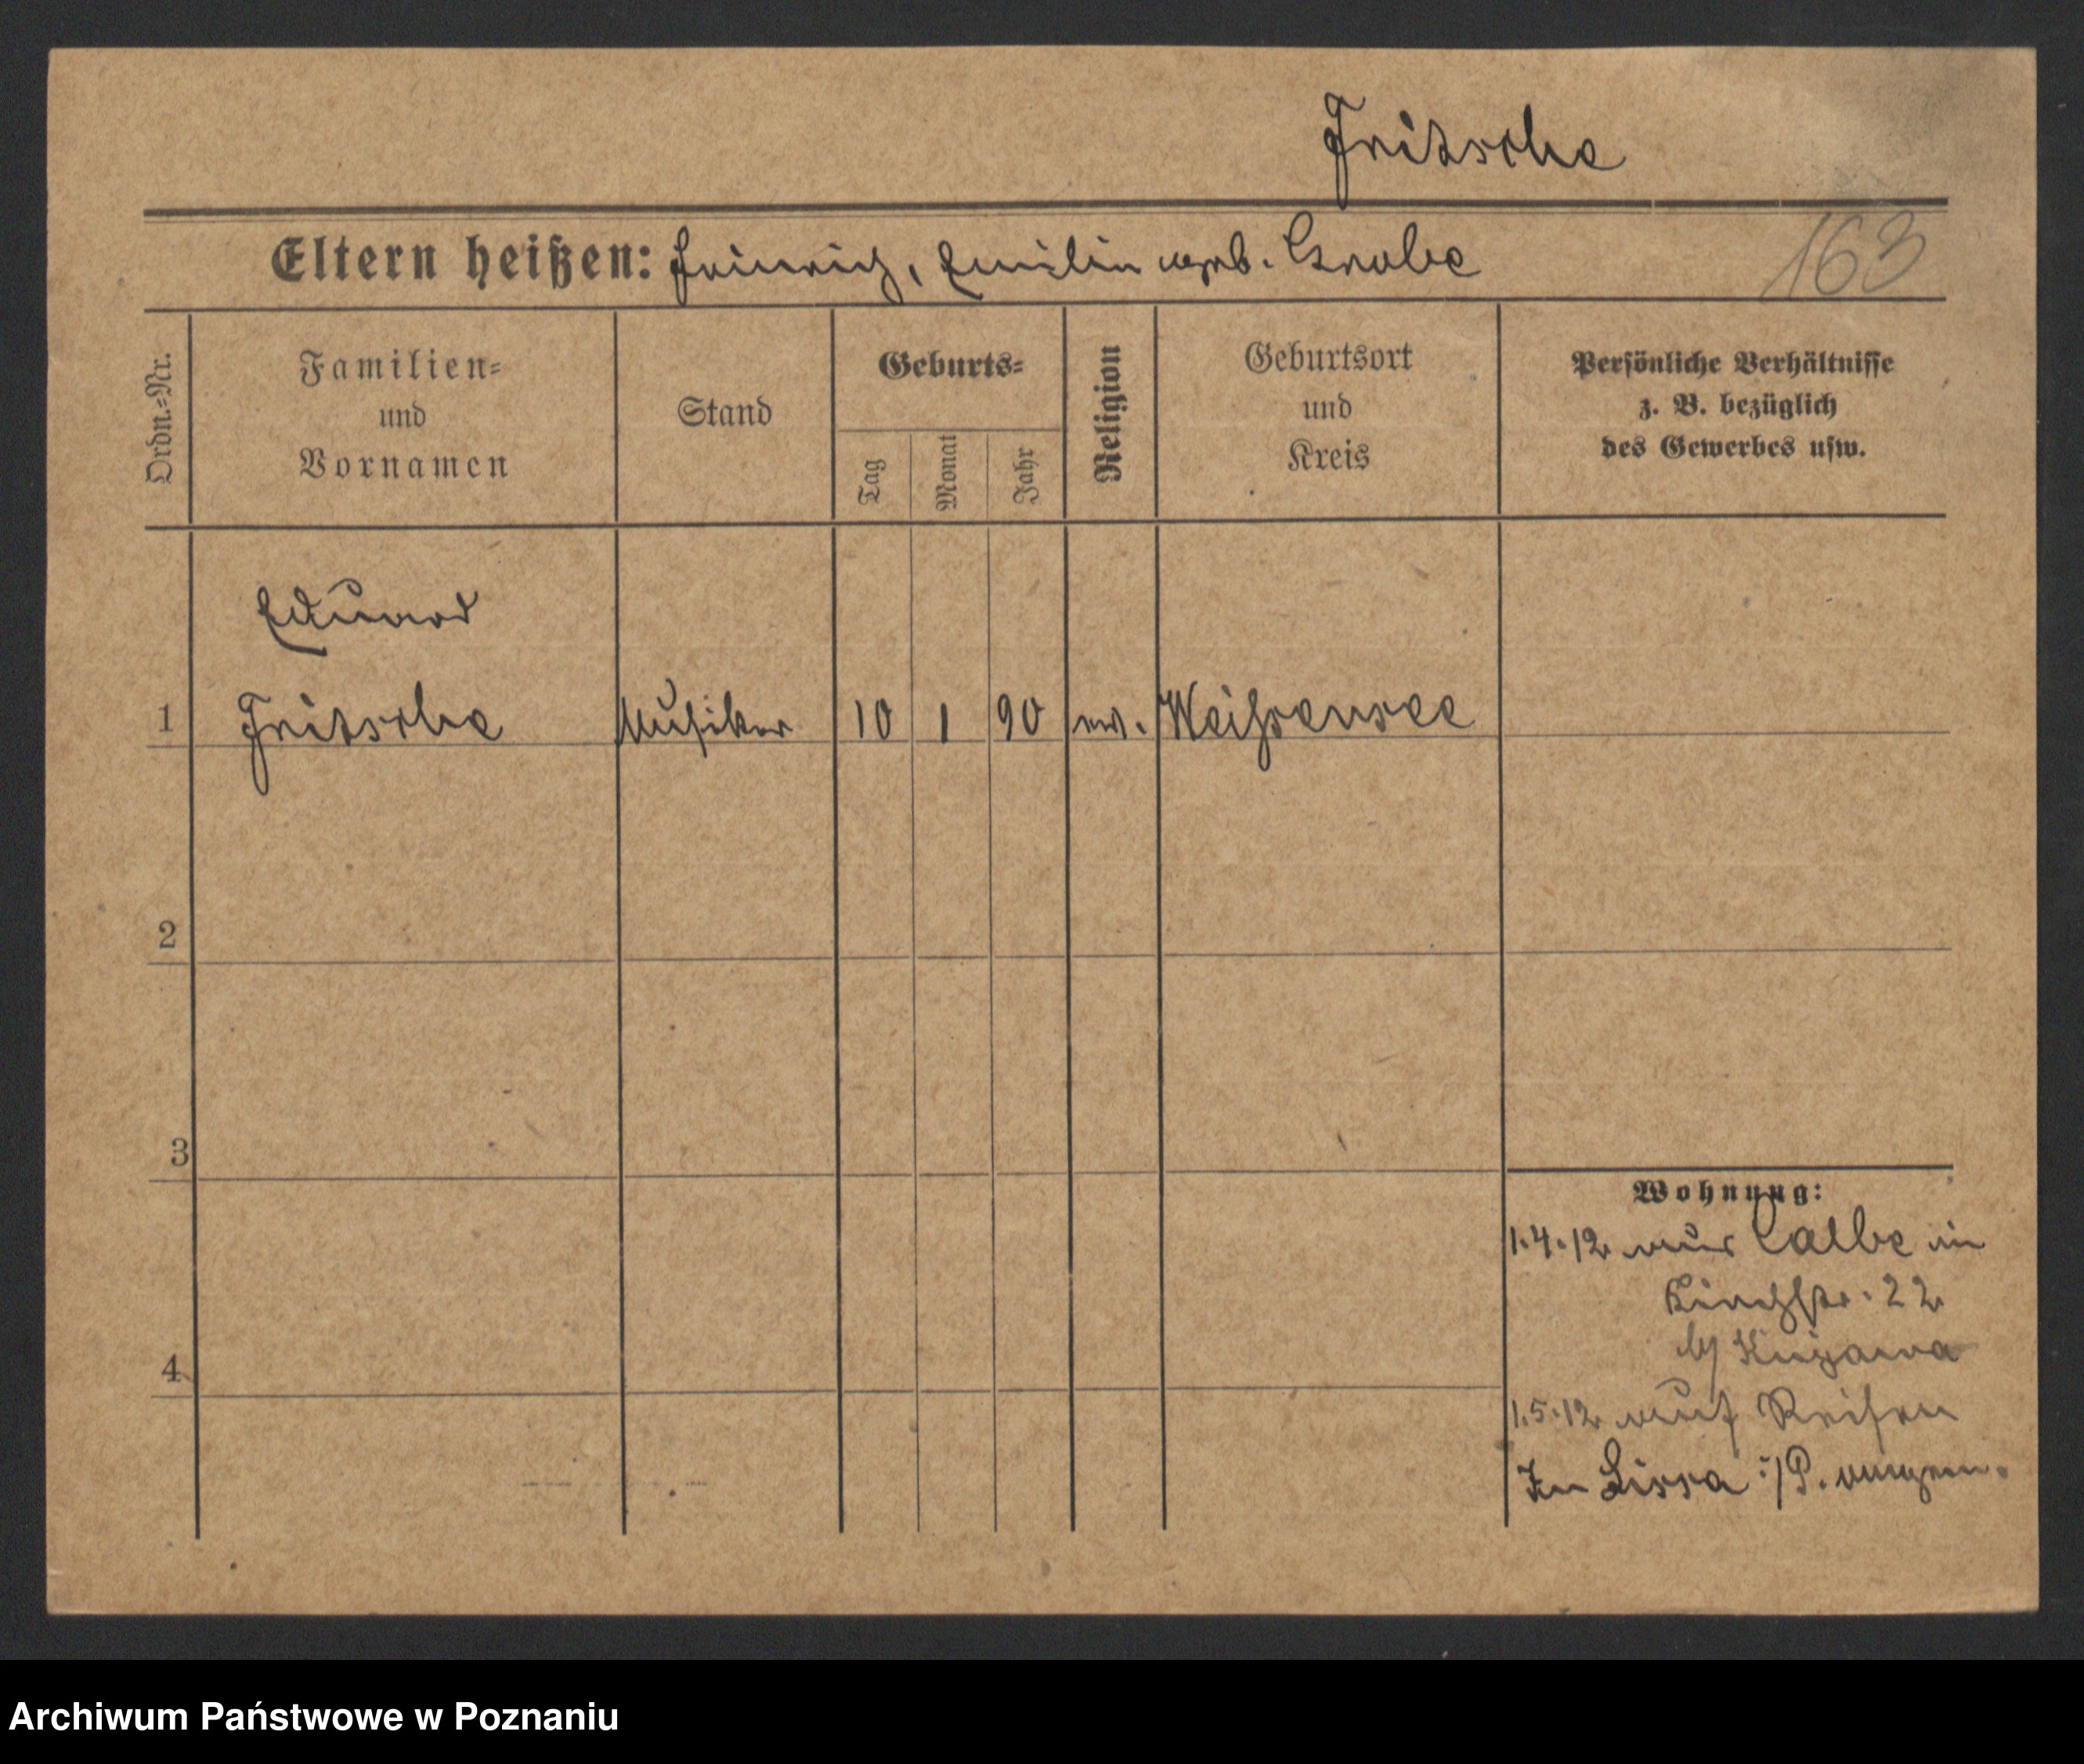 Fritsche
163
Eltern heißen: Heinrich, Emilie geb. Grabe
Ordn.=Nr.
Familien=
und
Vornamen
Stand
Geburts=
Tag
Monat
Jahr
Religion
Geburtsort
und
Kreis
Persönliche Verhältnisse
z. B. bezüglich
des Gewerbes usw.
Eduard
1 Fritsche Musiker 10 1 90 ev. Weißensee
2
3
4
Wohnung:
1.4.12 aus Calbe in
Kirchstr. 22
b/ Kujawa
1.5.12 auf Reisen
In Lissa i/P. angem.
Archiwum Państwowe w Poznaniu